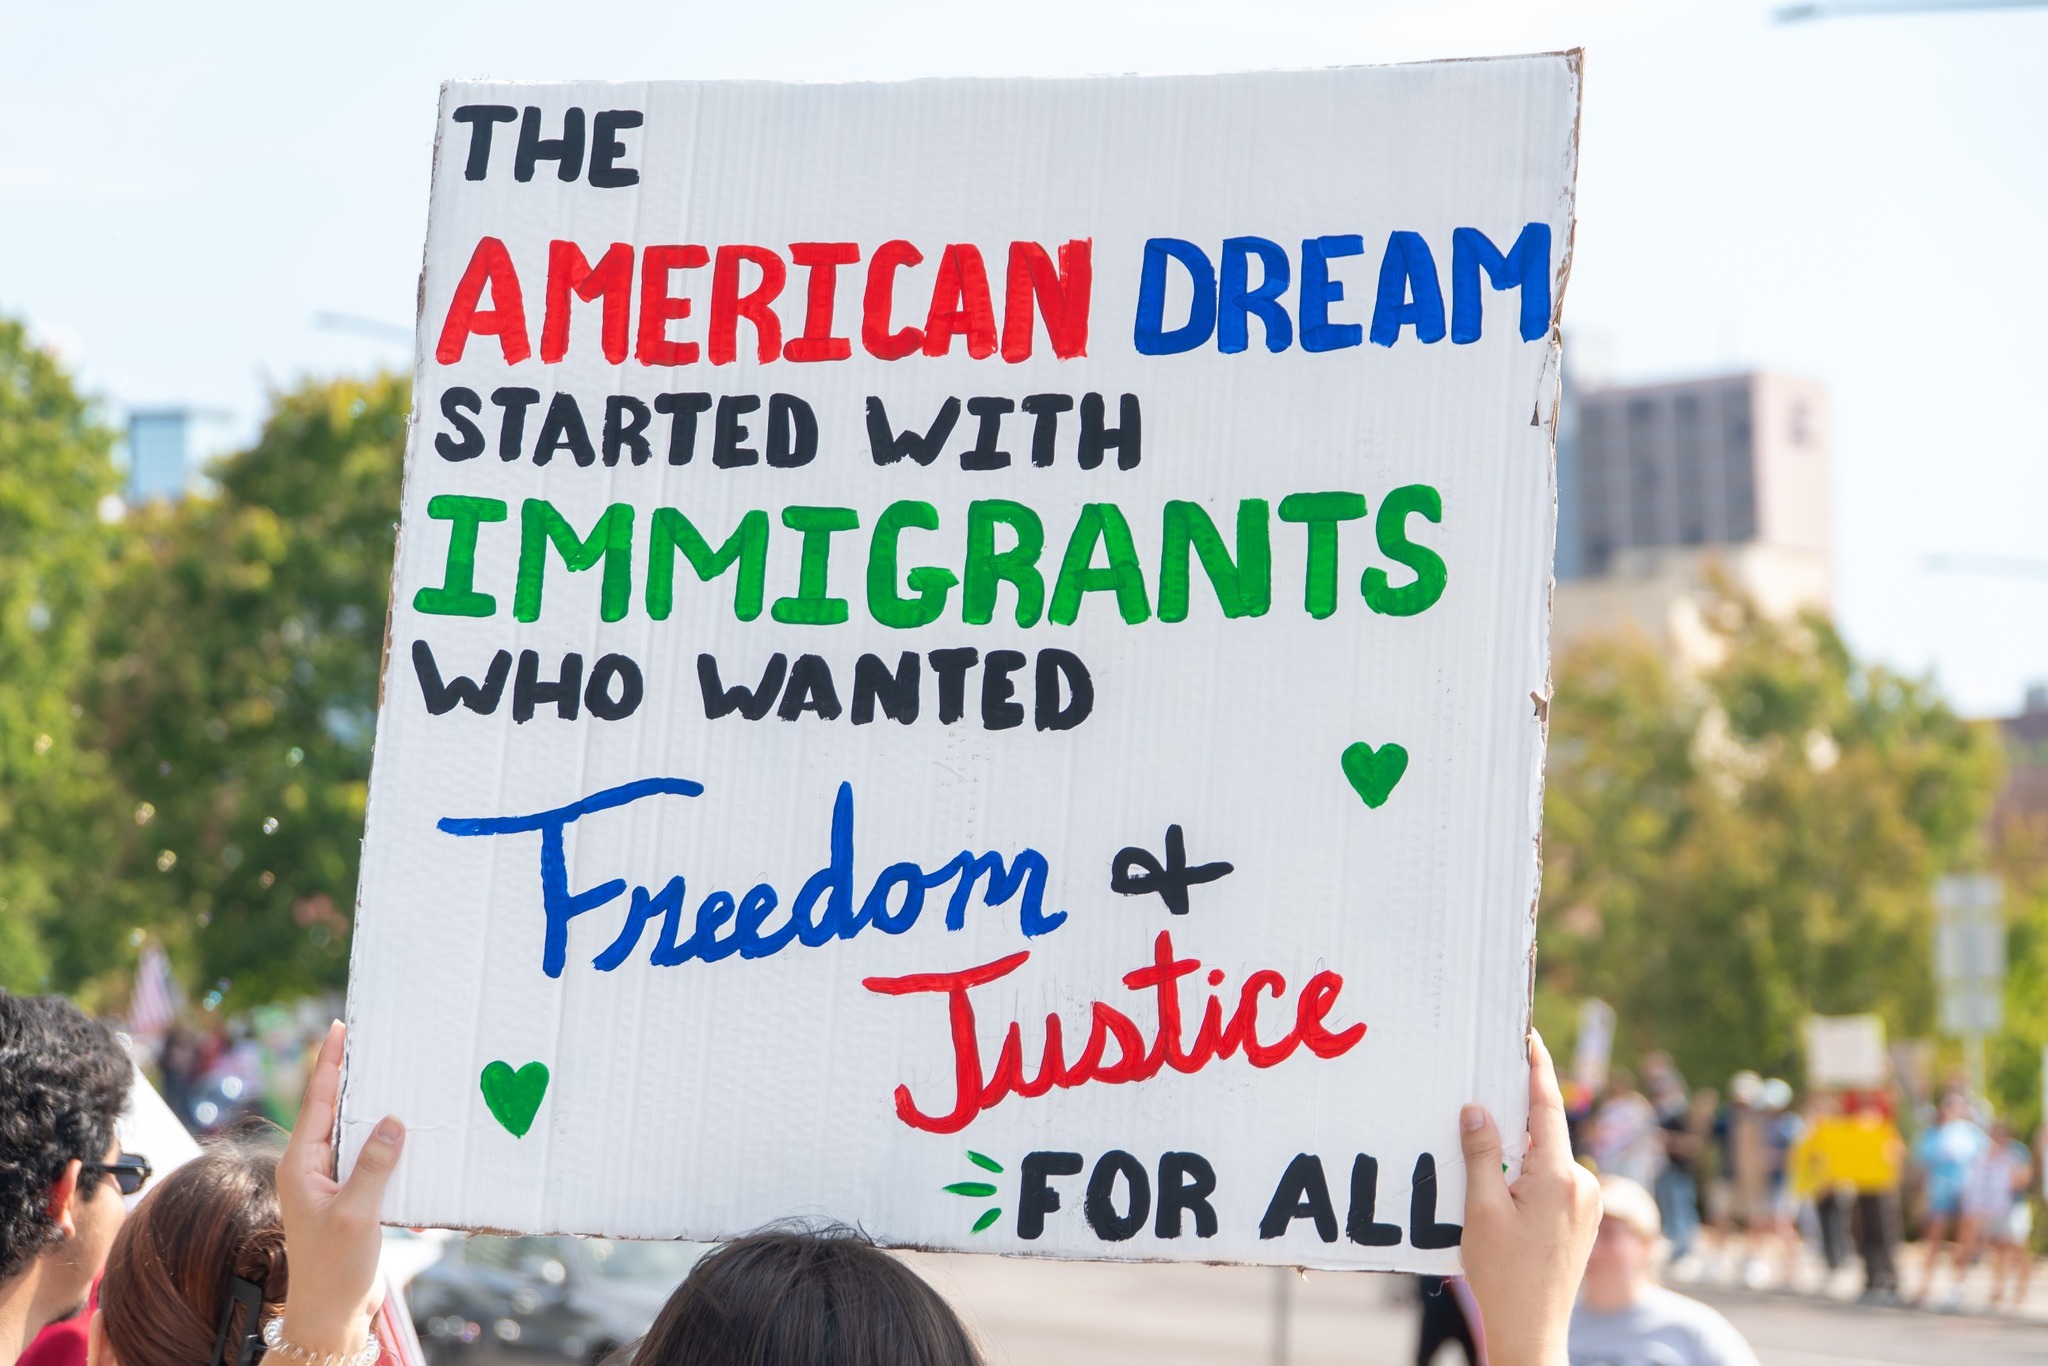 THE
AMERICAN DREAM
STARTED WITH
IMMIGRANTS
WHO WANTED
Freedom &
Justice
FOR ALL